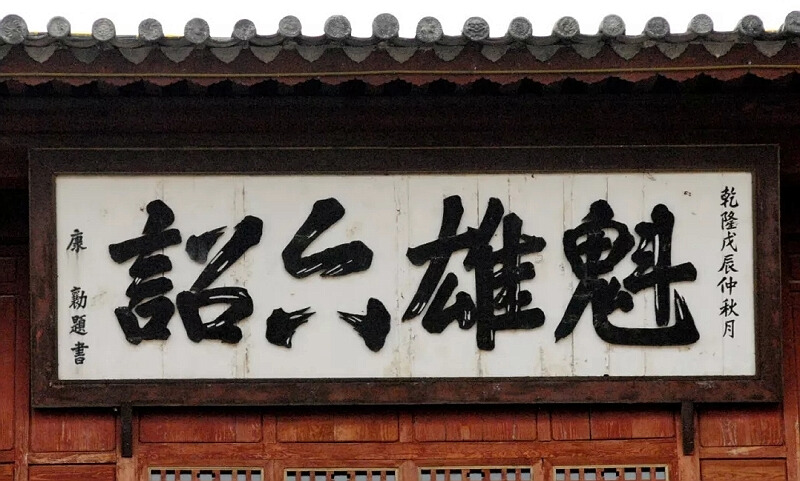 乾隆戊辰仲秋月
魁雄六詔
康勷題書